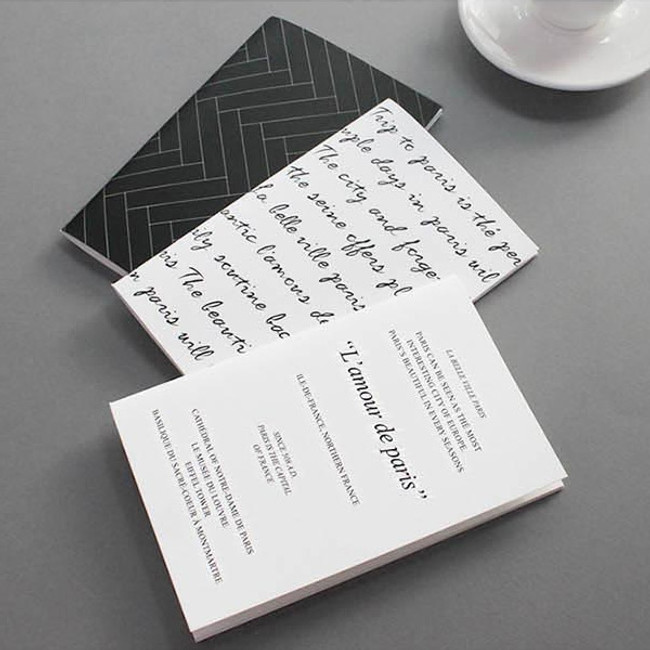 Trip to paris is the
days in paris
The city and
the seine offers
la belle ville paris
l'amous
soutine
The
paris will
LA BELLE VILLE PARIS
PARIS CAN BE SEEN AS THE MOST
INTERESTING CITY OF EUROPE.
PARIS'S BEAUTIFUL IN EVERY SEASONS
“L'amour de paris”
ILE-DE-FRANCE, NORTHERN FRANCE
SINCE 508 A.D.
PARIS IS THE CAPITAL
OF FRANCE
CATHEDRAL OF NOTRE-DAME DE PARIS
LE MUSÉE DU LOUVRE
EIFFEL TOWER
BASILIQUE DU SACRÉ-COEUR À MONTMARTRE